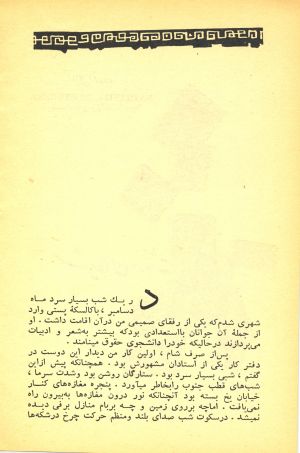 در یك شب بسیار سرد ماه
دسامبر ، باکالسکهٔ پستی وارد
شهری شدم که یکی از رفقای صمیمی من در آن اقامت داشت . او
از جملهٔ آن جوانان بااستعدادی بود که بیشتر به شعر و ادبیات
می پردازند در حالیکه خود را دانشجوی حقوق مینامند .
پس از صرف شام ، اولین کار من دیدار این دوست در
دفتر کار یکی از استادان مشهورش بود . همچنانکه پیش از این
گفتم ، شبی بسیار سرد بود . ستارگان روشن بود وشدت سرما ،
شب‌های قطب جنوب را بخاطر میآورد . پنجره مغازه‌های کنار
خیابان یخ بسته بود آنچنانکه نور درون مغازه‌ها به بیرون راه
نمی‌یافت . اما چه بر روی زمین و چه بر بام منازل برفی دیده
نمیشد . در سکوت شب صدای بلند و منظم حرکت چرخ درشکه‌ها